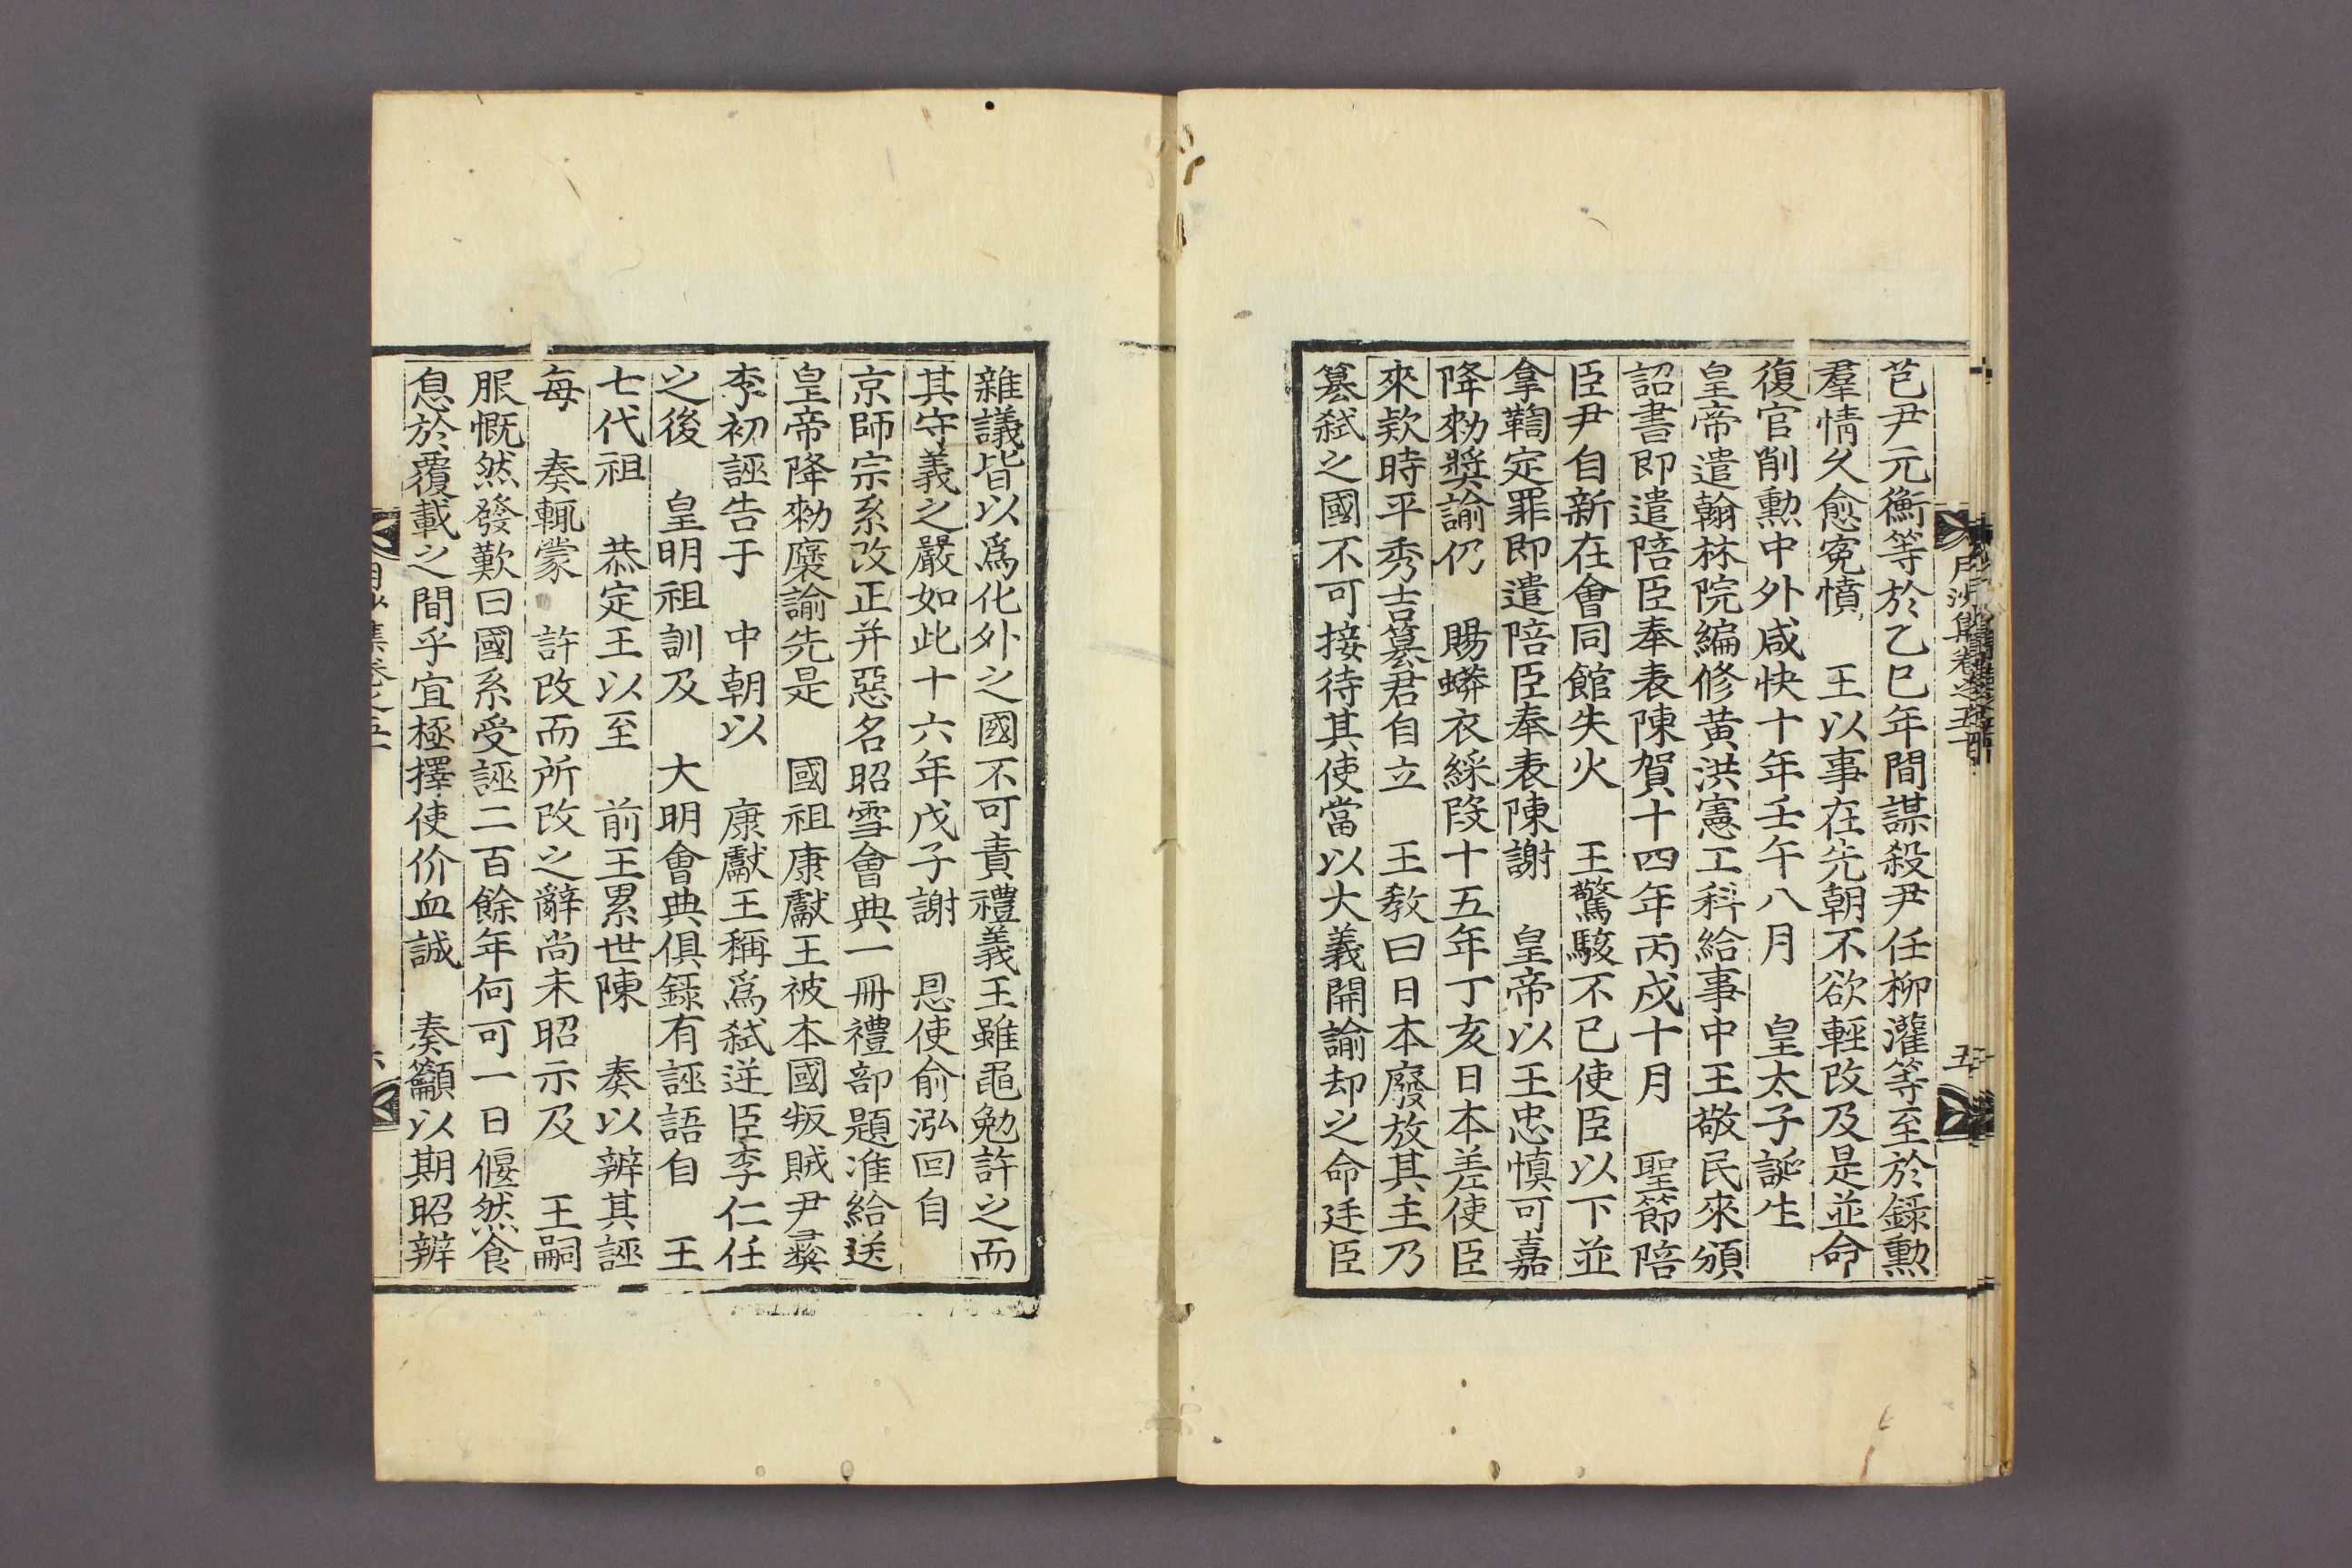 芑尹元衡等於乙巳年間謀殺尹任柳灌等至於錄勳
羣情久愈寃憤 王以事在先朝不欲輕改及是並命
復官削勳中外咸快十年壬午八月 皇太子誕生
皇帝遣翰林院編修黃洪憲工科給事中王敬民來頒
詔書即遣陪臣奉表陳賀十四年丙戍十月 聖節陪
臣尹自新在會同館失火 王驚駭不已使臣以下並
拿鞫定罪即遣陪臣奉表陳謝 皇帝以王忠慎可嘉
降勑奬諭仍 賜蟒衣綵段十五年丁亥日本差使臣
來欵時平秀吉簒君自立 王敎曰日本廢放其主乃
簒弑之國不可接待其使當以大義開諭却之命廷臣
雜議皆以爲化外之國不可責禮義王雖黽勉許之而
其守義之嚴如此十六年戊子謝 恩使俞泓回自
京師宗系改正并惡名昭雪會典一冊禮部題准給送
皇帝降勑襃諭先是 國祖康獻王被本國叛賊尹彛
李初誣告于 中朝以 康獻王稱爲弑逆臣李仁任
之後 皇明祖訓及 大明會典俱錄有誣語自 王
七代祖 恭定王以至 前王累世陳 奏以辨其誣
每 奏輒蒙 許改而所改之辭尚未昭示及 王嗣
服慨然發歎曰國系受誣二百餘年何可一日偃然食
息於覆載之間乎宜極擇使价血誠 奏籲以期昭辨